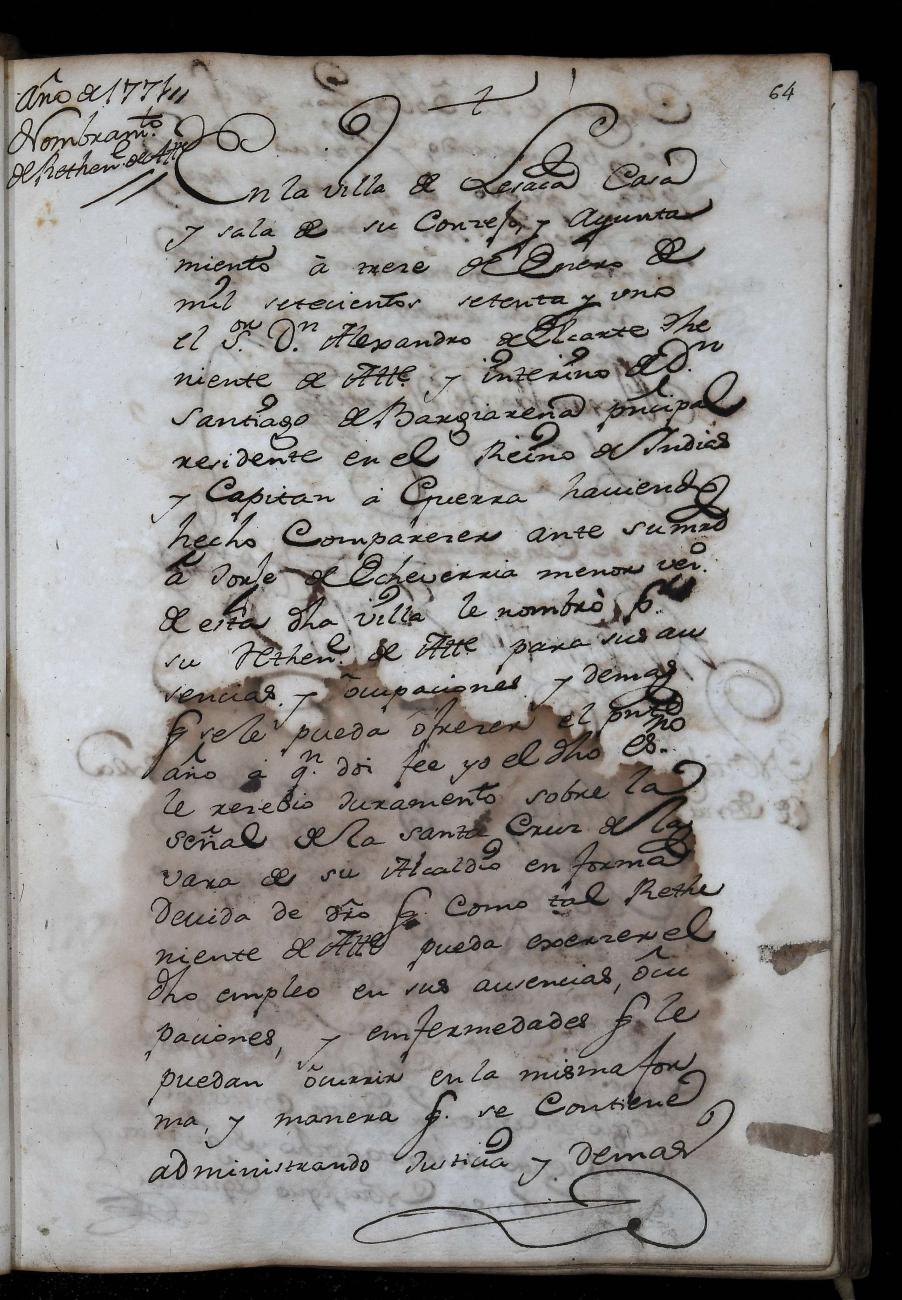 64
Año de 1771,,
Nombramto.
de Rethene. de Alle
En la villa de Lesaca Casa
y sala de su Conzejo, y Ayunta
miento à treze de Enero de
mil setecientos setenta y uno
el Sor. Dn. Alexandro de Elcarte The
niente de Alle. y interino de Dn
Santiago de Bargiarena prncipal
residente en el Reino de Indias
y Capitan à Guerra haviendo
hecho Comparezer ante su mrd
à Jorje de Echeverria menor vei.
de esta dha villa le nombrò pr.
su Rethene. de Alle. para sus au
sencias, y òcupaciones y demas
q sele pueda òfrezer el pnte
año a qn. doi fee yo el dho esno.
le rezebio Juramento sobre la
señal de la santa Cruz de la
vara de su Alcaldia en forma
devida de dro q. Como tal Rethe
niente de Alle pueda exerzer el
dho empleo en sus ausencias, òcu
paciones, y emfermedades q le
puedan òcurrir en la misma for
ma, y manera q. se Contiene
administrando Justicia y demas